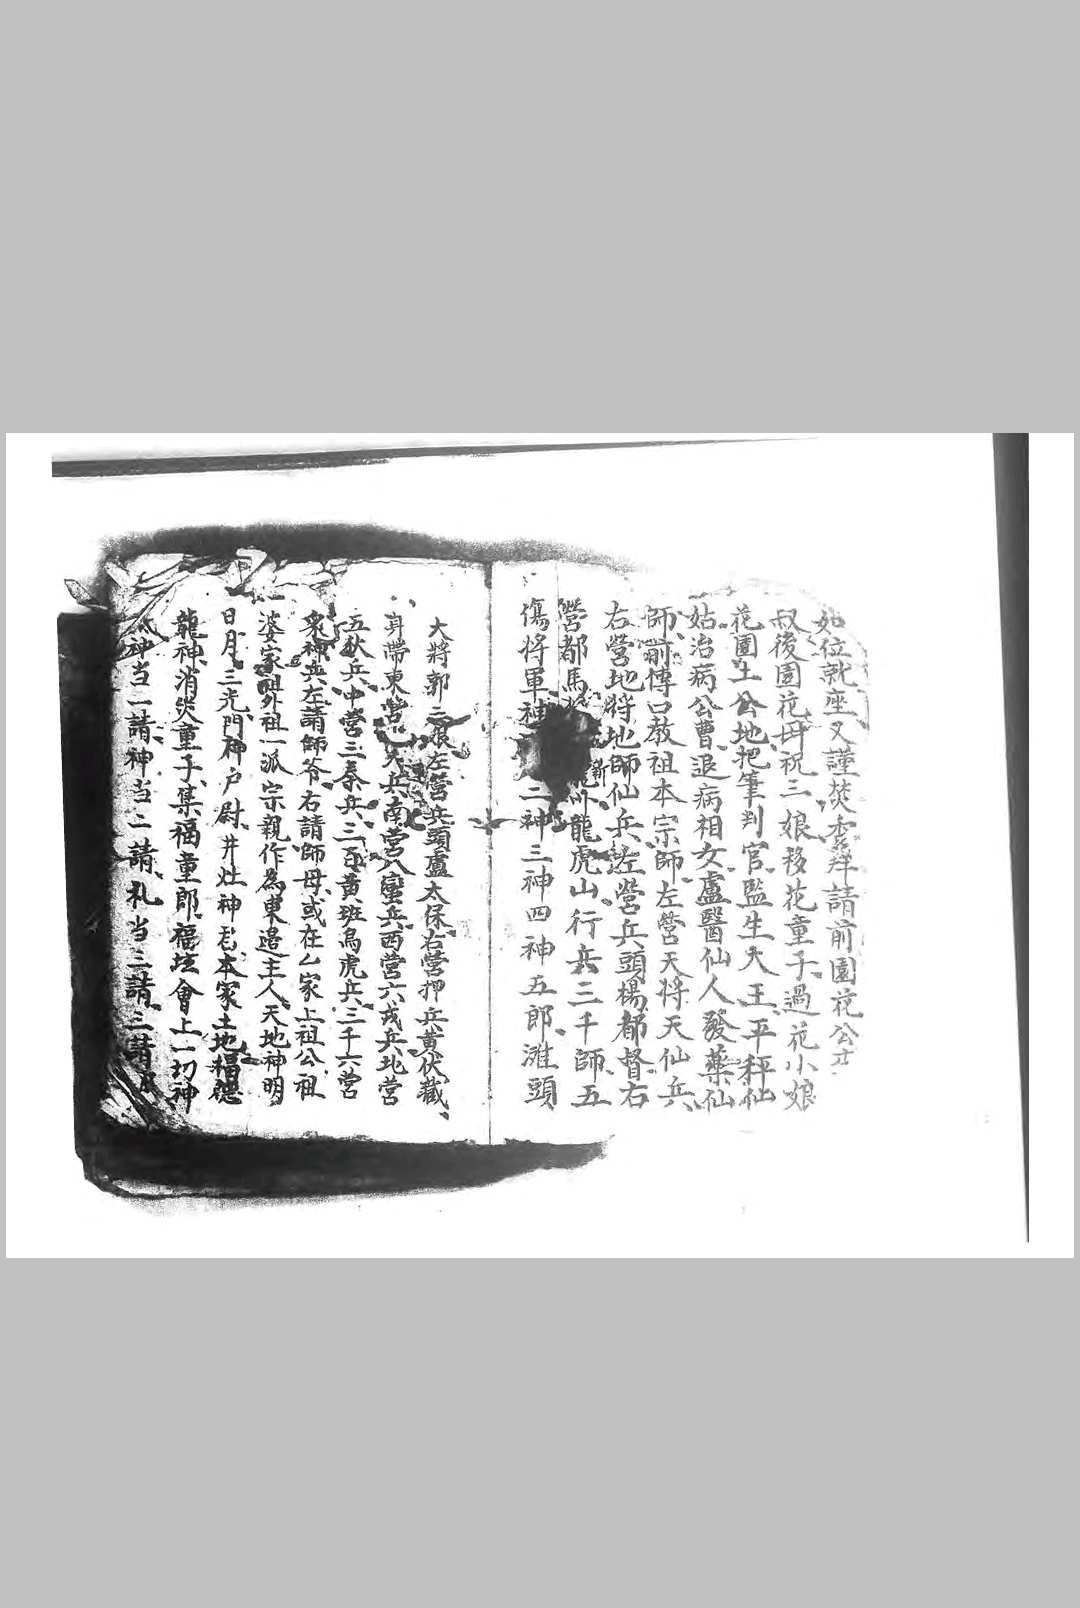 位就座又謹焚香拜請前園花公
叔後園花母祝三娘移花童子過花小娘
花園土公地把筆判官監生大王平秤仙
姑治病公曹退病相女盧醫仙人發藥仙
師前傳口教祖本宗師左營天將天仙兵
右營地將地師仙兵左營兵頭楊都督右
營都馬龍虎山行兵三千師五
傷將軍神二神三神四神五郎灘頭
大將郭三娘左營兵頭盧太保右營押兵黃伏藏
帶東營九夷兵南營八蠻兵西營六戎兵北營
五狄兵中營三秦兵三百黃班烏虎兵三千六營
眾神兵左請師爷右請師母或在家上祖公祖
婆家祖外祖一派宗親作為東邉主人天地神明
日月三光門神户尉井灶神君本家土地福德
龍神消災童子集福童郎福坛會上一切神
神当一請神当二請礼当三請三請